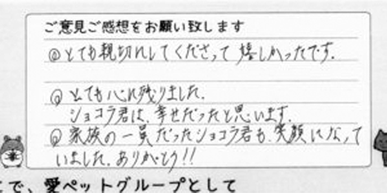 ご意見ご感想をお願い致します
◎とても親切にしてくださって嬉しかったです。
◎とても心に残りました。
ショコラ君は、幸せだったと思います。
◎家族の一員だったショコラ君も、笑顔になって
いました。ありがとう!!
で、愛ペットグループとして